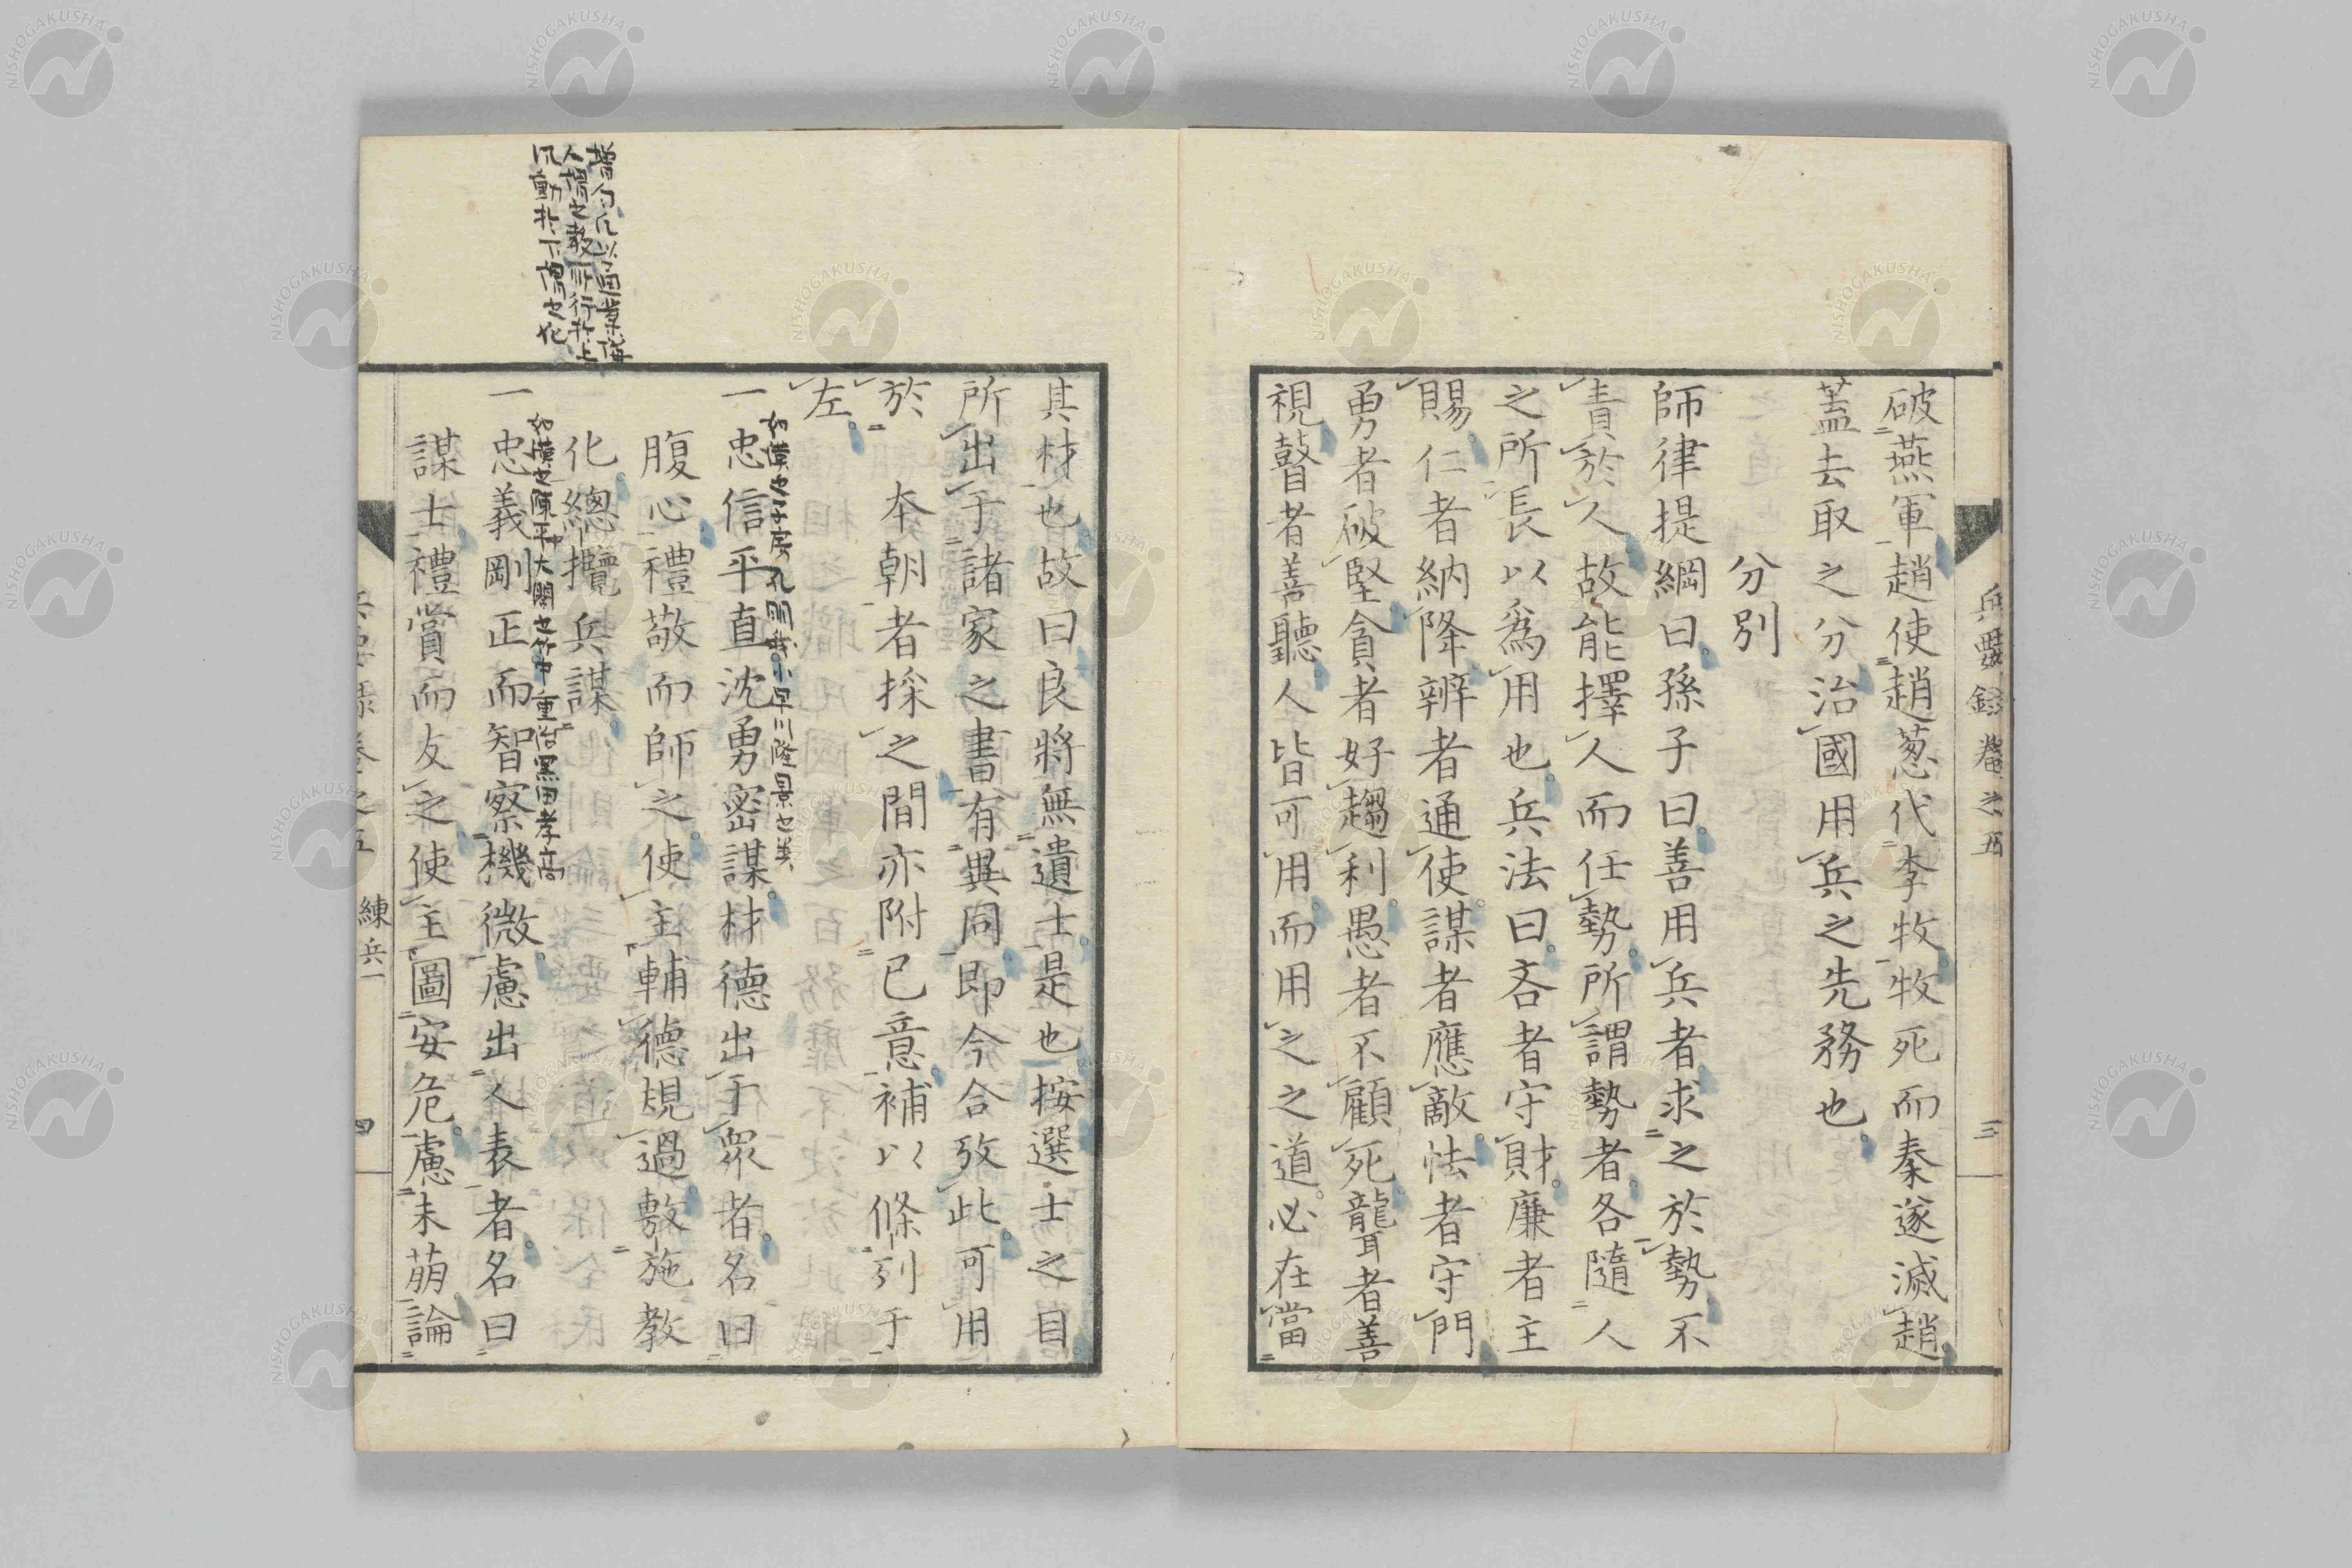 兵要録卷之五
三
破燕軍趙使趙葱代李牧牧死而秦遂滅趙
蓋去取之分治國用兵之先務也
分別
師律提綱曰孫子曰善用兵者求之於勢不
責於人故能擇人而任勢所謂勢者各隨人
之所長以爲用也兵法曰吝者守財廉者主
賜仁者納降辨者通使謀者應敵怯者守門
勇者破堅貪者好趨利愚者不顧死聾者善
視瞽者善聽人皆可用而用之之道必在當
其材也故曰良將無遺士是也按選士之目
所出于諸家之書有異同即今合攷此可用
於 本朝者採之間亦附己意補以條列于
左
如漢之子房孔明我小早川隆景之類
一忠信平直沈勇密謀材德出于衆者名曰
腹心禮敬而師之使主輔德規過敷施教
化總攬兵謀
如漢之陳平大閤之竹中重治黑田孝高
一忠義剛正而智察機微慮出人表者名曰
謀士禮賞而友之使主圖安危慮未萠論
以通業誨
人謂之教所行於上
風動於下謂之化
兵要録卷之五
練兵一
四
NISHOGAKUSHA